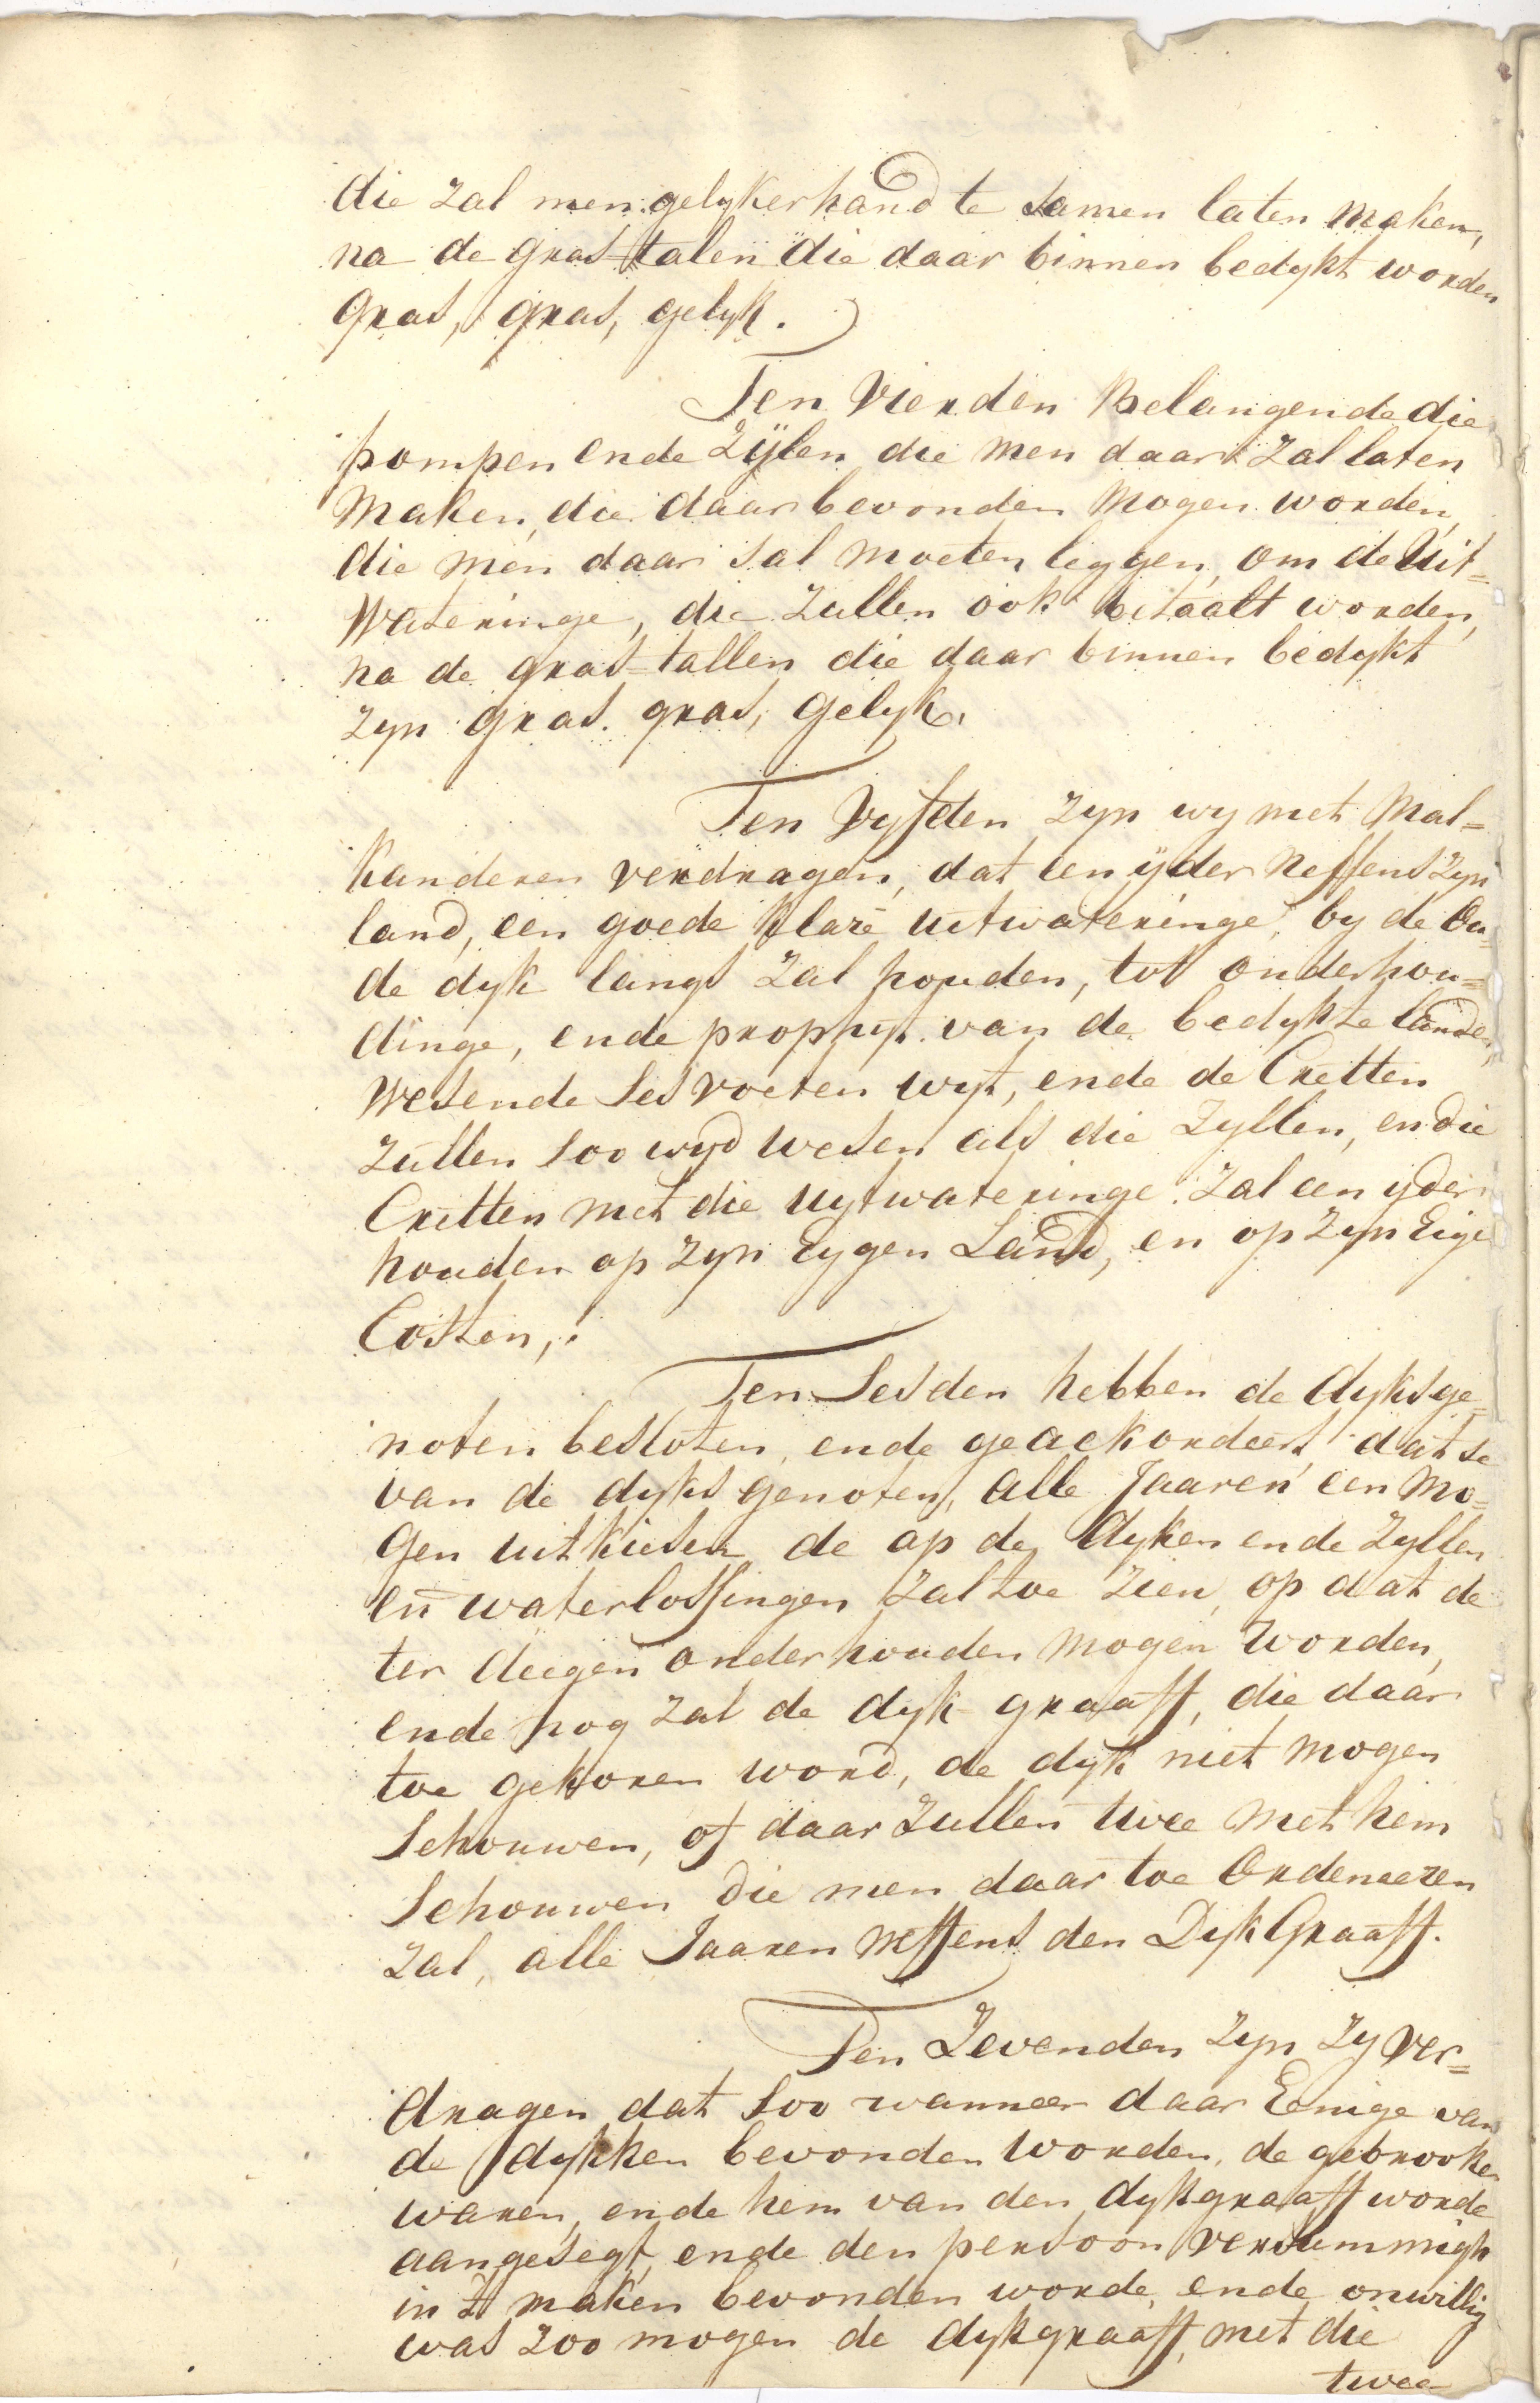 die zal men gelykerhand te samen laten maken,
na de gras-talen die daar binnen bedykt worden
gras, gras, gelyk.
Ten Vierden Belangende die
pompen ende Zÿlen die men daar zal laten
maken, die daar bevonden mogen worden,
die men daar sal moeten leggen, om de Uit=
Wateringe, die zullen ook betaalt worden,
na de gras-tallen die daar binnen bedykt
zyn gras. gras, gelyk.
Ten Vyfden zyn wy met Mal=
kanderen verdragen, dat een ÿder neffens zyn
land, een goede klare uitwateringe, by de Ou=
de dyk langs zal houden, tot onderhou=
dinge, ende prophyt van de bedykte landen,
wesende ses voeten wyt, ende de Cretten
zullen soo wyd wesen als die Zyllen, en die
Cretten met die uytwateringe zal een yder
houden op zyn Eygen Land, en op zyn Eige
Costen,.
Ten Sesden hebben de dyksge=
noten besloten, ende geackordeert dat se
van de dyks genoten, alle Jaaren een mo=
gen uitkiesen de op de dyken ende Zyllen
en waterlossingen zal toe zien, op dat de
ter deegen onderhouden mogen worden,
ende nog zal de dyk-graaff, die daar
toe gekoren word, de dyk niet mogen
Schouwen, of daar zullen twee met hem
Schouwen die men daar toe Ordeneeren
zal, alle Jaaren neffens den DykGraaff.
Ten Zevenden zyn zy ver=
dragen dat soo wanneer daar Eenige van
de dykken bevonden worden, de gebrooken
waren, ende hem van den dykgraaff worde
aangesegt, ende den persoon versummigh
in 't maken bevonden worde, ende onwillig
was zoo mogen de dykgraaff, met die
twee